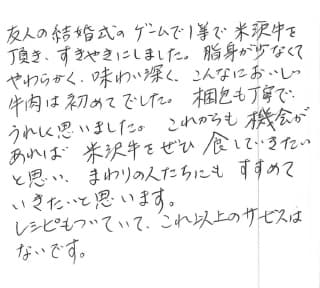 友人の結婚式のゲームで1等で米沢牛を
頂き、すきやきにしました。脂身が少なくて
やわらかく、味わい深く、こんなにおいしい
牛肉は初めてでした。梱包も丁寧で、
うれしく思いました。これからも機会が
あれば 米沢牛をぜひ食していきたい
と思い、まわりの人たちにもすすめて
いきたいと思います。
レシピもついていて、これ以上のサービスは
ないです。